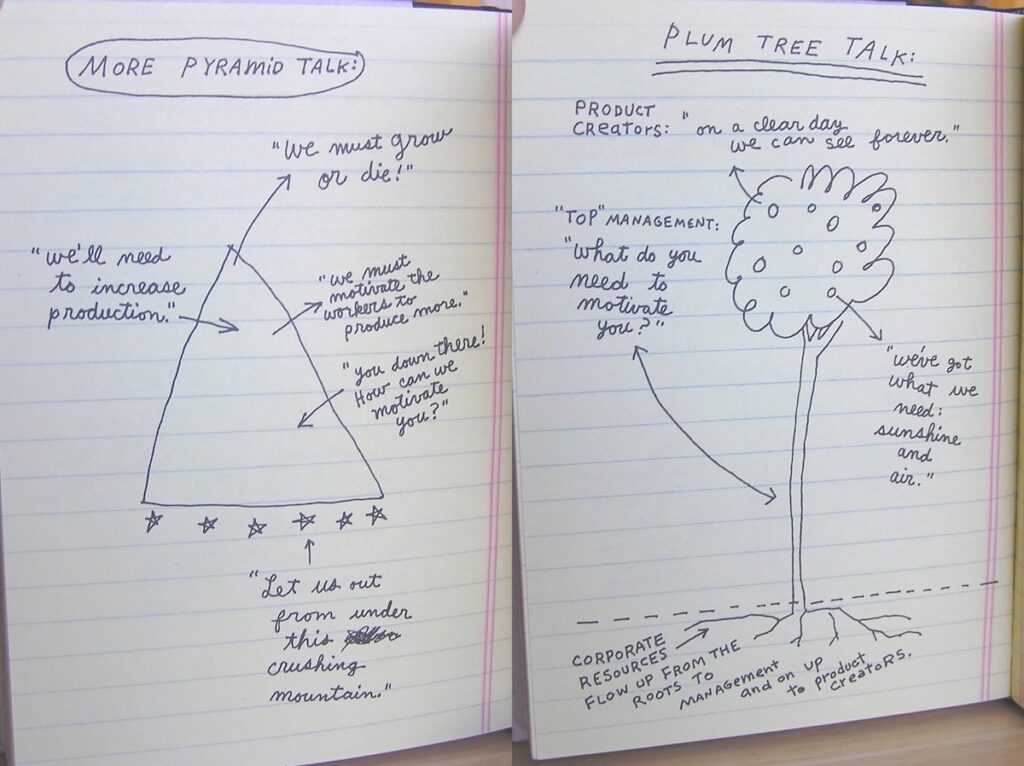 MORE PYRAMID TALK:
"We must grow
or die!"
"we'll need
to increase
production."
"we must
motivate the
workers to
produce more."
"you down there!
How can we
motivate
you?"
"Let us out
from under
this
crushing
mountain."
PLUM TREE TALK:
PRODUCT
CREATORS: "on a clear day
we can see forever."
"TOP" MANAGEMENT:
"What do you
need to
motivate
you?"
"we've got
what we
need:
sunshine
and
air."
CORPORATE
RESOURCES
FLOW UP FROM THE
ROOTS TO
MANAGEMENT
and on up
to product
CREATORS.